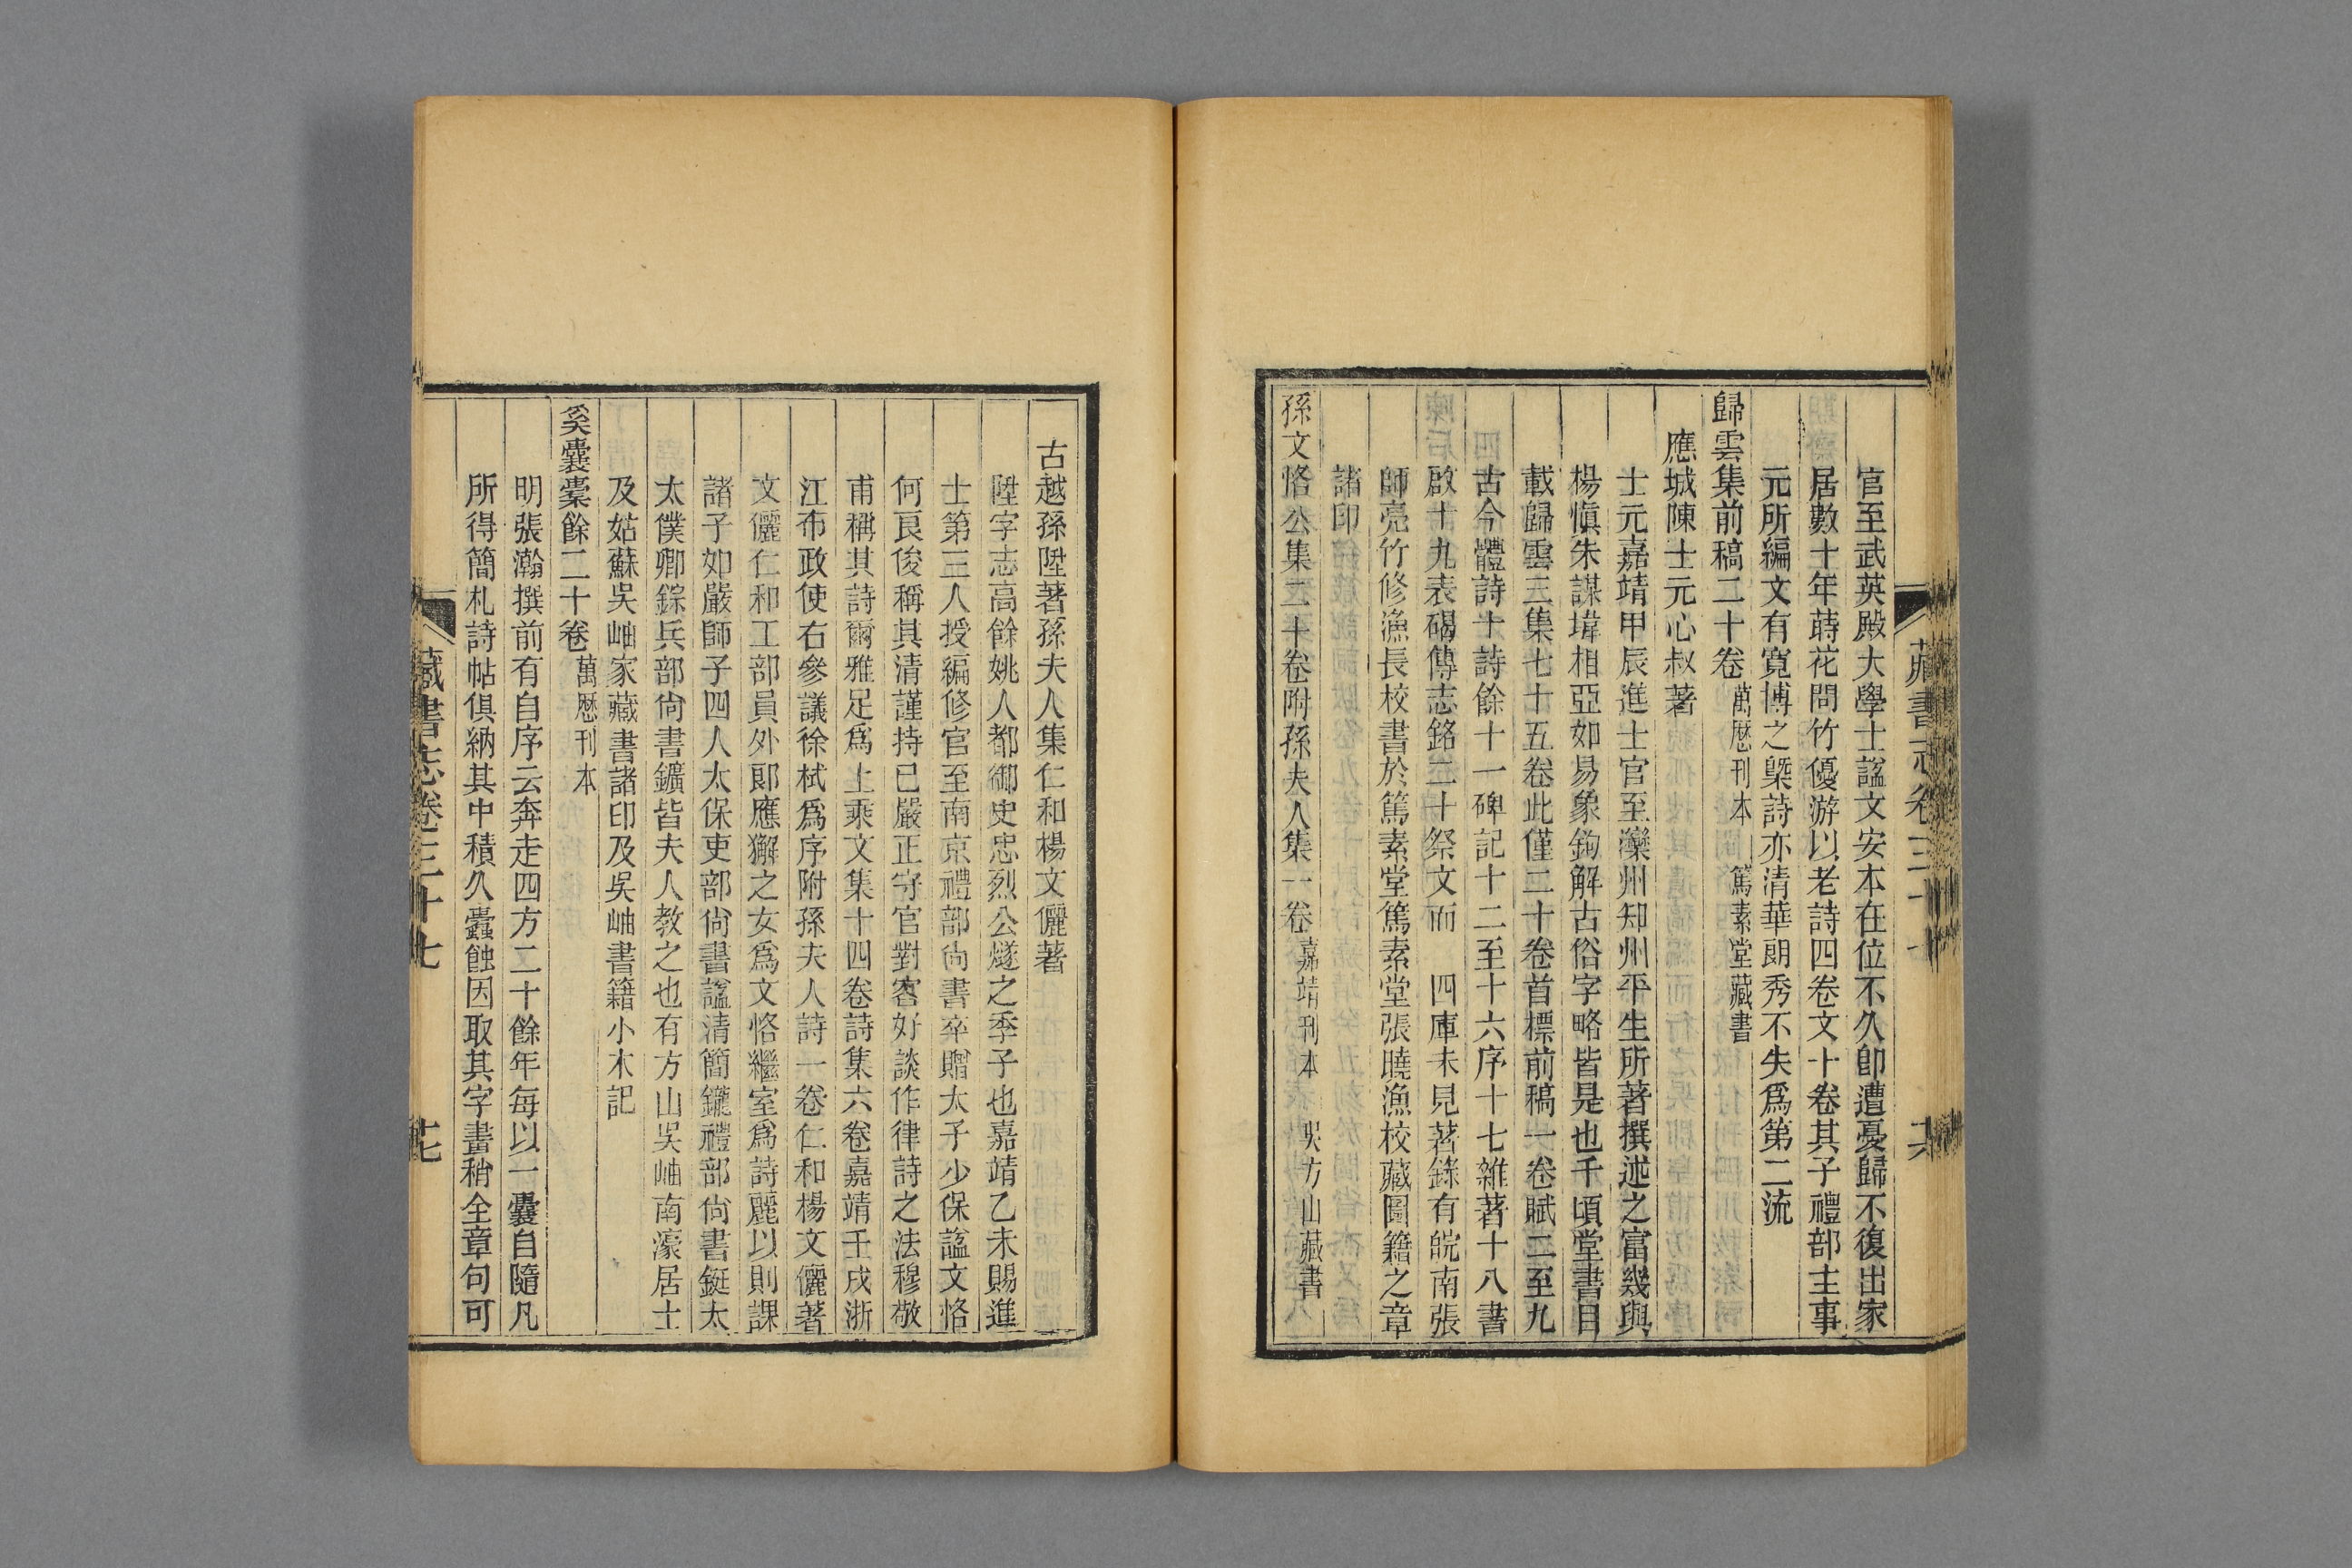 官至武英殿大學士諡文安本在位不久卽遭憂歸不復出家
居數十年蒔花問竹優游以老詩四卷文十卷其子禮部主事
元所編文有寬博之槩詩亦清華朗秀不失爲第二流
歸雲集前稿二十卷 萬厯刊本 篤素堂藏書
應城陳士元心叔著
士元嘉靖甲辰進士官至灤州知州平生所著撰述之富幾與
楊愼朱謀㙔相亞如易象鉤解古俗字略皆是也千頃堂書目
載歸雲三集七十五卷此僅二十卷首標前稿一卷賦二至九
古今體詩十詩餘十一碑記十二至十六序十七雜著十八書
啟十九表碣傳志銘二十祭文而 四庫未見著錄有皖南張
師亮竹修漁長校書於篤素堂篤素堂張曉漁校藏圖籍之章
諸印
孫文恪公集二十卷附孫夫人集一卷 嘉靖刊本 吳方山藏書
藏書志卷三十七
古越孫陞著孫夫人集仁和楊文儷著
陞字志高餘姚人都御史忠烈公燧之季子也嘉靖乙未賜進
士第三人授編修官至南京禮部尙書卒贈太子少保諡文恪
何良俊稱其清謹持已嚴正守官對客好談作律詩之法穆敬
甫稱其詩爾雅足爲上乘文集十四卷詩集六卷嘉靖壬戌浙
江布政使右參議徐栻爲序附孫夫人詩一卷仁和楊文儷著
文儷仁和工部員外郞應獬之女爲文恪繼室爲詩麗以則課
諸子如嚴師子四人太保吏部尙書諡清簡鑨禮部尙書鋌太
太僕卿錝兵部尙書鑛皆夫人教之也有方山吳岫南濠居士
及姑蘇吳岫家藏書諸印及吳岫書籍小木記
奚囊橐餘二十卷 萬厯刊本
明張瀚撰前有自序云奔走四方二十餘年每以一囊自隨凡
所得簡札詩帖俱納其中積久蠹蝕因取其字畫稍全章句可
藏書志卷三十七